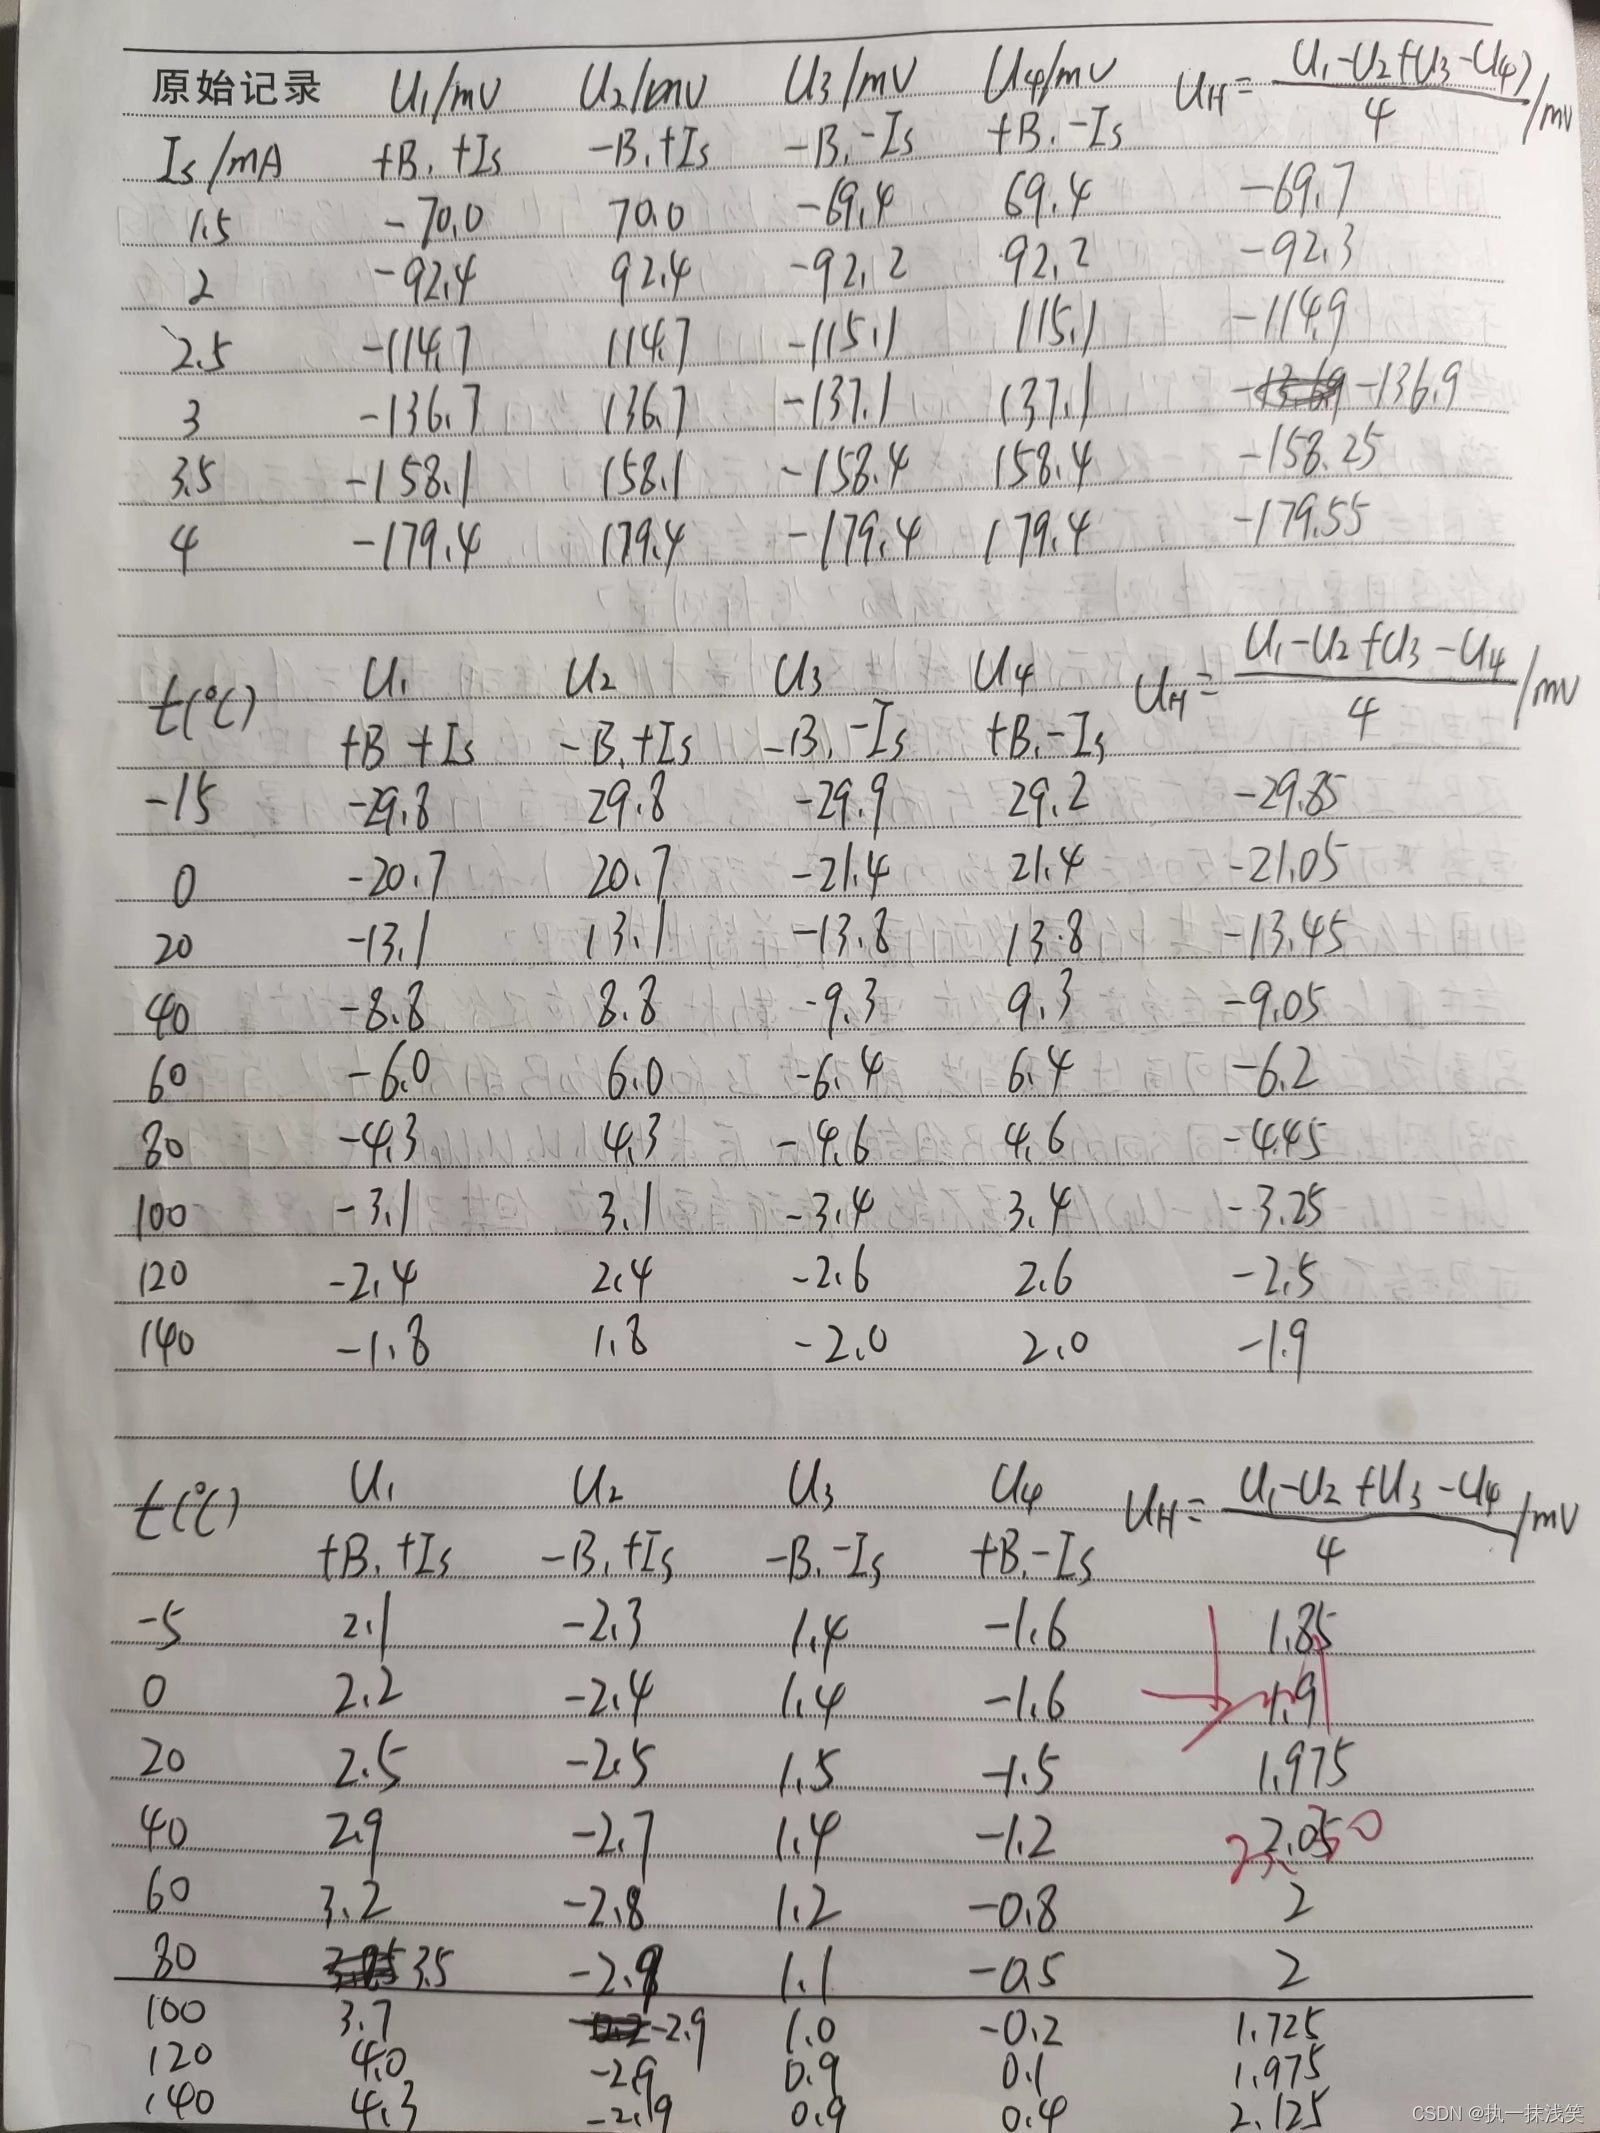 原始记录 U₁/mV U₂/mV U₃/mV U₄/mV U_H = (U₁-U₂+U₃-U₄)/4 /mV
Is/mA +B,+Is -B,+Is -B,-Is +B,-Is
1.5 -70.0 70.0 -69.4 69.4 -69.7
2 -92.4 92.4 -92.2 92.2 -92.3
2.5 -114.7 114.7 -115.1 115.1 -114.9
3 -136.7 136.7 -137.1 137.1 -136.9
3.5 -158.1 158.1 -158.4 158.4 -158.25
4 -179.4 179.4 -179.4 179.4 -179.55
t(℃) U₁ U₂ U₃ U₄ U_H = (U₁-U₂+U₃-U₄)/4 /mV
+B +Is -B,+Is -B,-Is +B,-Is
-15 -29.8 29.8 -29.9 29.2 -29.85
0 -20.7 20.7 -21.4 21.4 -21.05
20 -13.1 13.1 -13.8 13.8 -13.45
40 -8.8 8.8 -9.3 9.3 -9.05
60 -6.0 6.0 -6.4 6.4 -6.2
80 -4.3 4.3 -4.6 4.6 -4.45
100 -3.1 3.1 -3.4 3.4 -3.25
120 -2.4 2.4 -2.6 2.6 -2.5
140 -1.8 1.8 -2.0 2.0 -1.9
t(℃) U₁ U₂ U₃ U₄ U_H = (U₁-U₂+U₃-U₄)/4 /mV
+B,+Is -B,+Is -B,-Is +B,-Is
-5 2.1 -2.3 1.4 -1.6 1.85
0 2.2 -2.4 1.4 -1.6 1.9
20 2.5 -2.5 1.5 -1.5 1.975
40 2.9 -2.7 1.4 -1.2 2.050
60 3.2 -2.8 1.2 -0.8 2
80 3.5 -2.9 1.1 -0.5 2
100 3.7 -2.9 1.0 -0.2 1.725
120 4.0 -2.9 0.9 0.1 1.975
140 4.3 -2.9 0.9 0.4 2.125
CSDN @执一抹浅笑